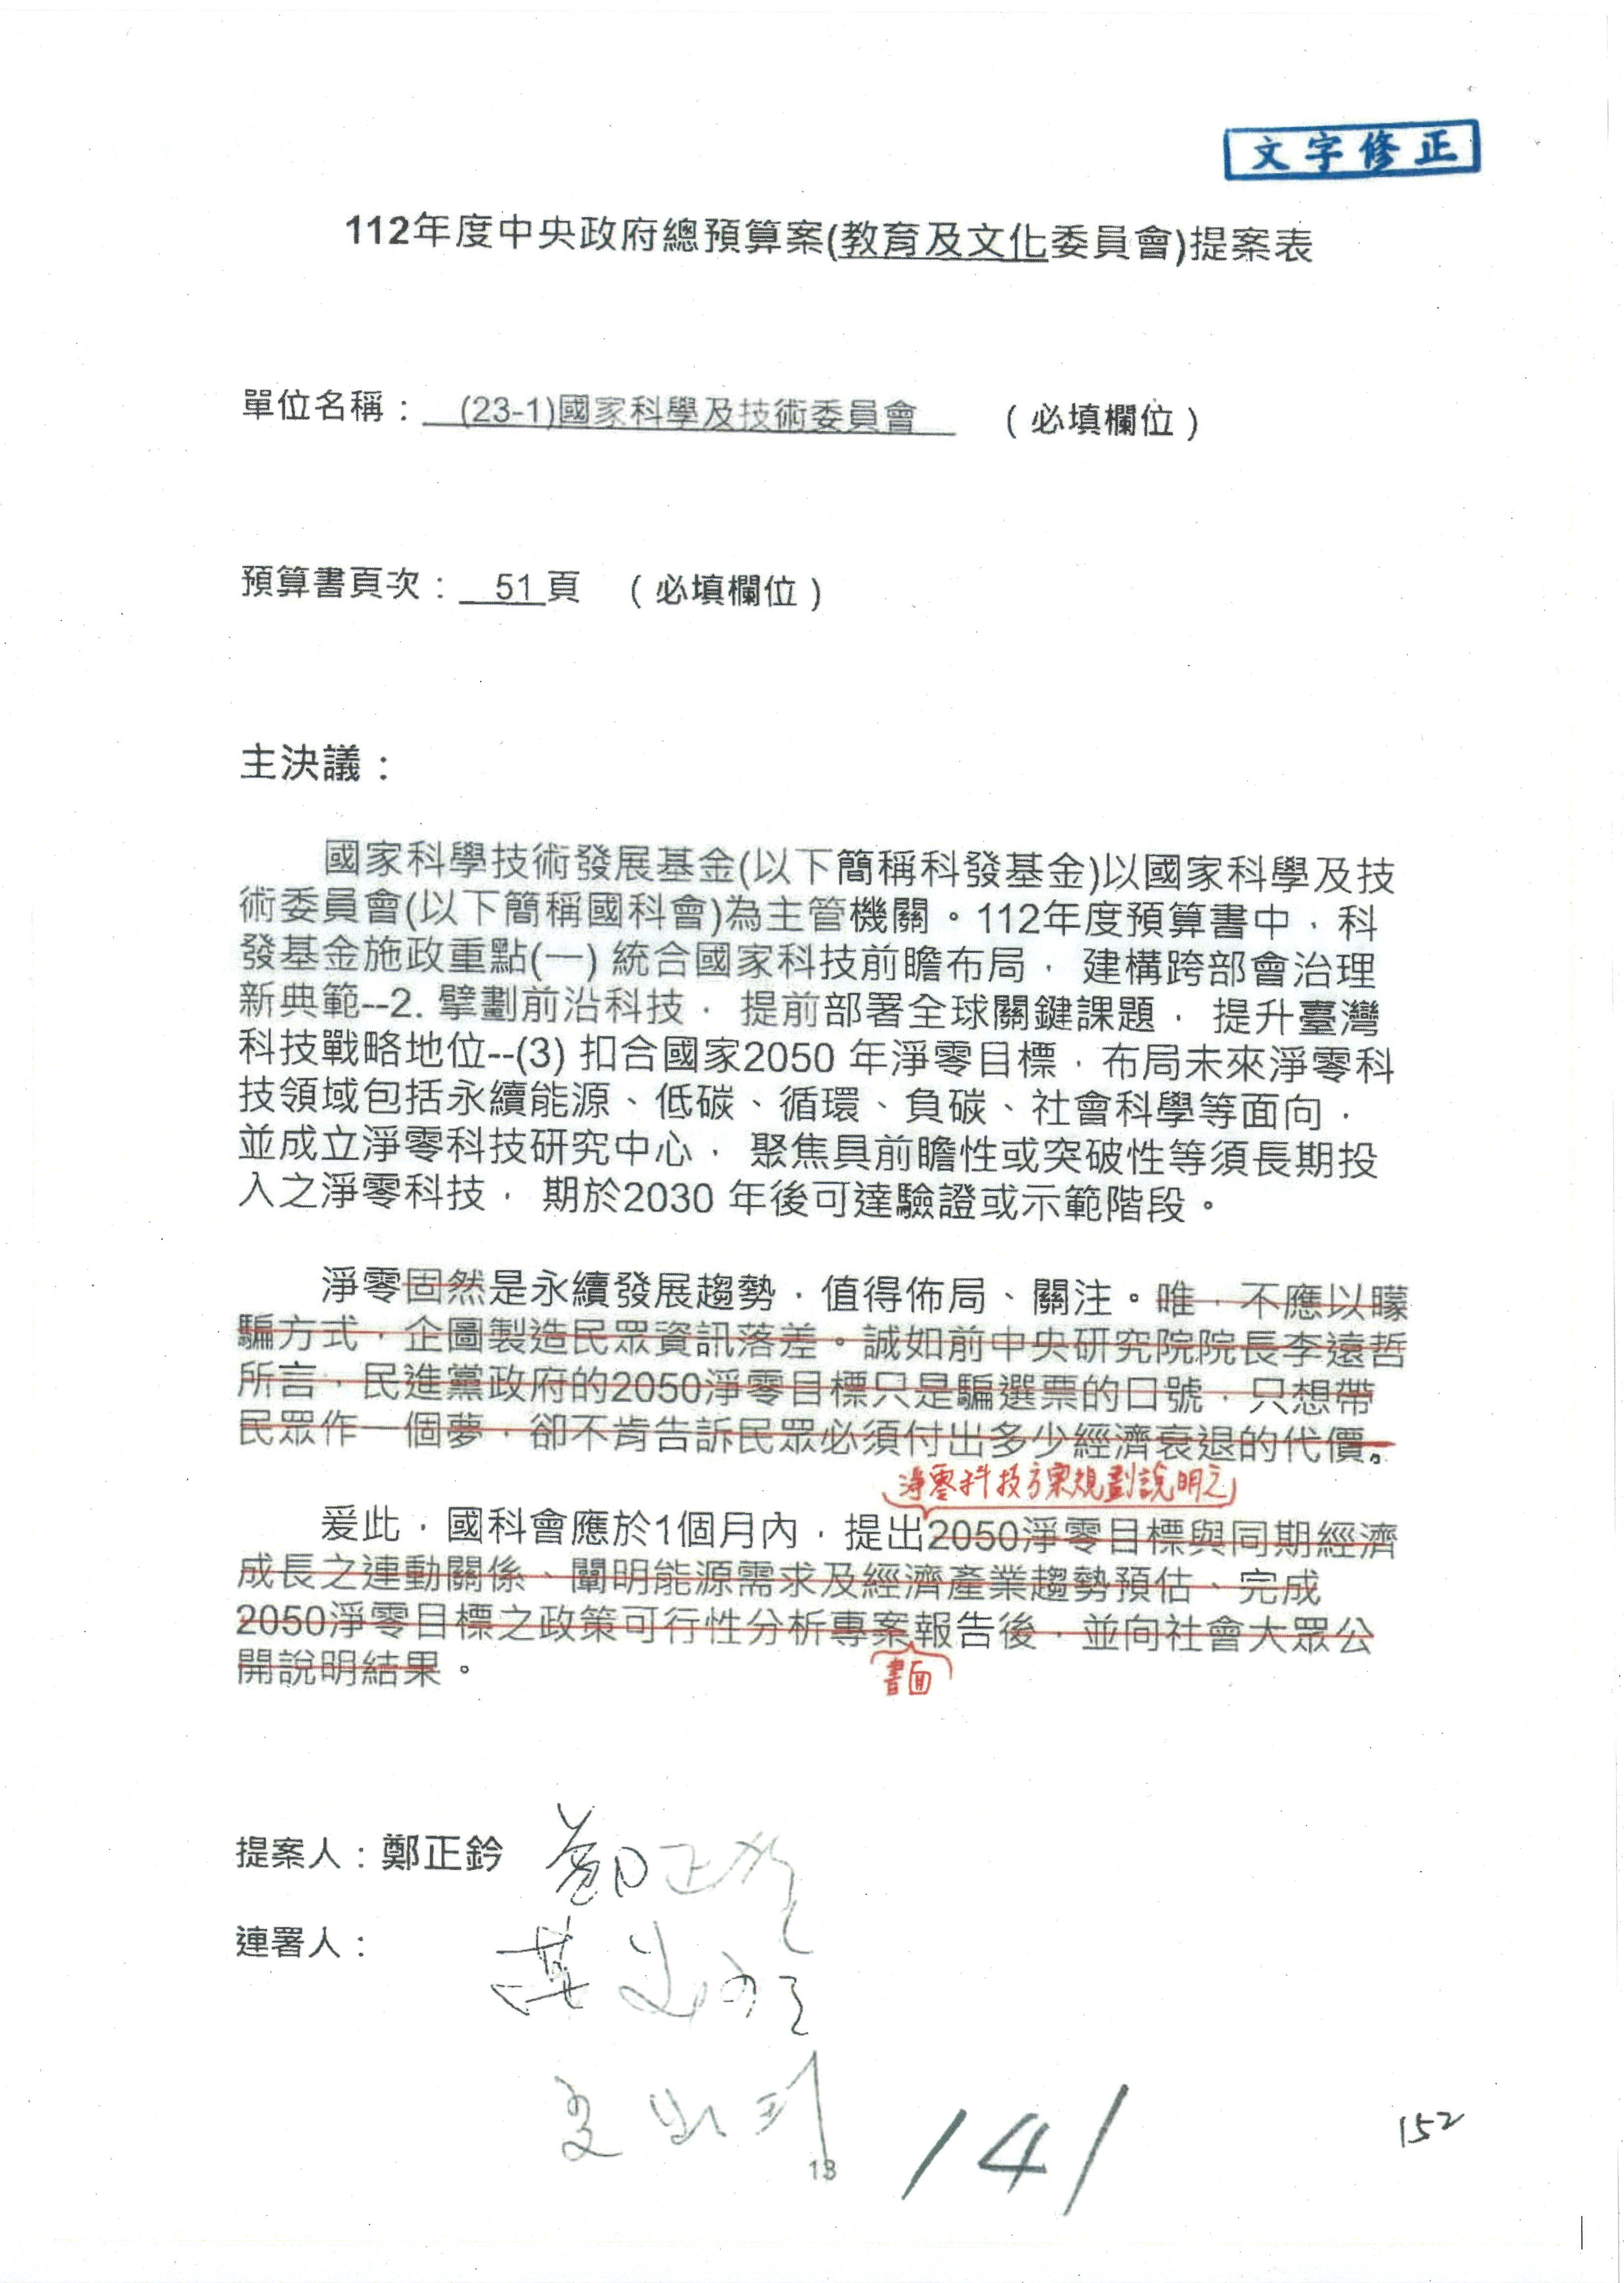 文字修正
112年度中央政府總預算案(教育及文化委員會)提案表
單位名稱： (23-1)國家科學及技術委員會 （必填欄位）
預算書頁次： 51頁 （必填欄位）
主決議：
國家科學技術發展基金(以下簡稱科發基金)以國家科學及技
術委員會(以下簡稱國科會)為主管機關。112年度預算書中，科
發基金施政重點(一) 統合國家科技前瞻布局， 建構跨部會治理
新典範--2. 擘劃前沿科技， 提前部署全球關鍵課題， 提升臺灣
科技戰略地位--(3) 扣合國家2050 年淨零目標，布局未來淨零科
技領域包括永續能源、低碳、循環、負碳、社會科學等面向，
並成立淨零科技研究中心， 聚焦具前瞻性或突破性等須長期投
入之淨零科技， 期於2030 年後可達驗證或示範階段。
淨零固然是永續發展趨勢，值得佈局、關注。唯，不應以矇
騙方式，企圖製造民眾資訊落差。誠如前中央研究院院長李遠哲
所言，民進黨政府的2050淨零目標只是騙選票的口號，只想帶
民眾作一個夢，卻不肯告訴民眾必須付出多少經濟衰退的代價。
淨零科技方案規劃說明之
爰此，國科會應於1個月內，提出2050淨零目標與同期經濟
成長之連動關係、闡明能源需求及經濟產業趨勢預估、完成
2050淨零目標之政策可行性分析專案報告後，並向社會大眾公
開說明結果。
書面
提案人：鄭正鈐 鄭正鈐
連署人：
13
141
152